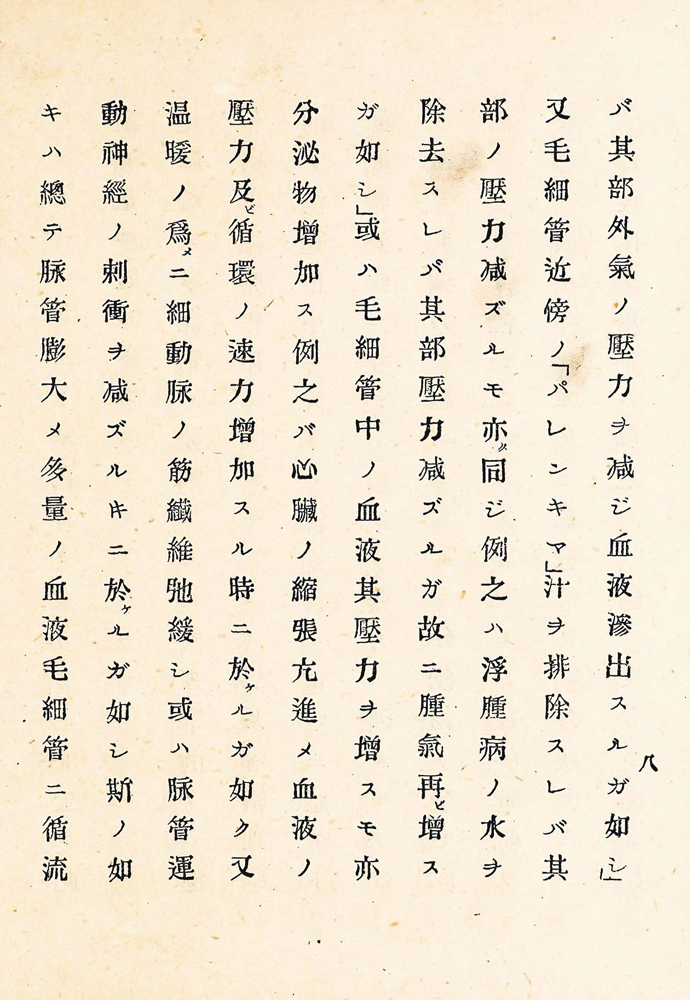 バ其部外氣ノ壓力ヲ减ジ血液滲出スルガ如シ」
又毛細管近傍ノ「パレンキマ」汁ヲ排除スレバ其
部ノ壓力减ズルモ亦ク同ジ例之ハ浮腫病ノ水ヲ
除去スレバ其部壓力减ズルガ故ニ腫氣再ビ增ス
ガ如シ」或ハ毛細管中ノ血液其壓力ヲ增スモ亦
分泌物增加ス例之バ心臟ノ縮張亢進メ血液ノ
壓力及ビ循環ノ速力增加スル時ニ於ケルガ如ク又
温暖ノ爲メニ細動脉ノ筋纖維弛緩シ或ハ脉管運
動神經ノ刺衝ヲ减ズルキニ於ケルガ如シ斯ノ如
キハ總テ脉管膨大メ多量ノ血液毛細管ニ循流
八